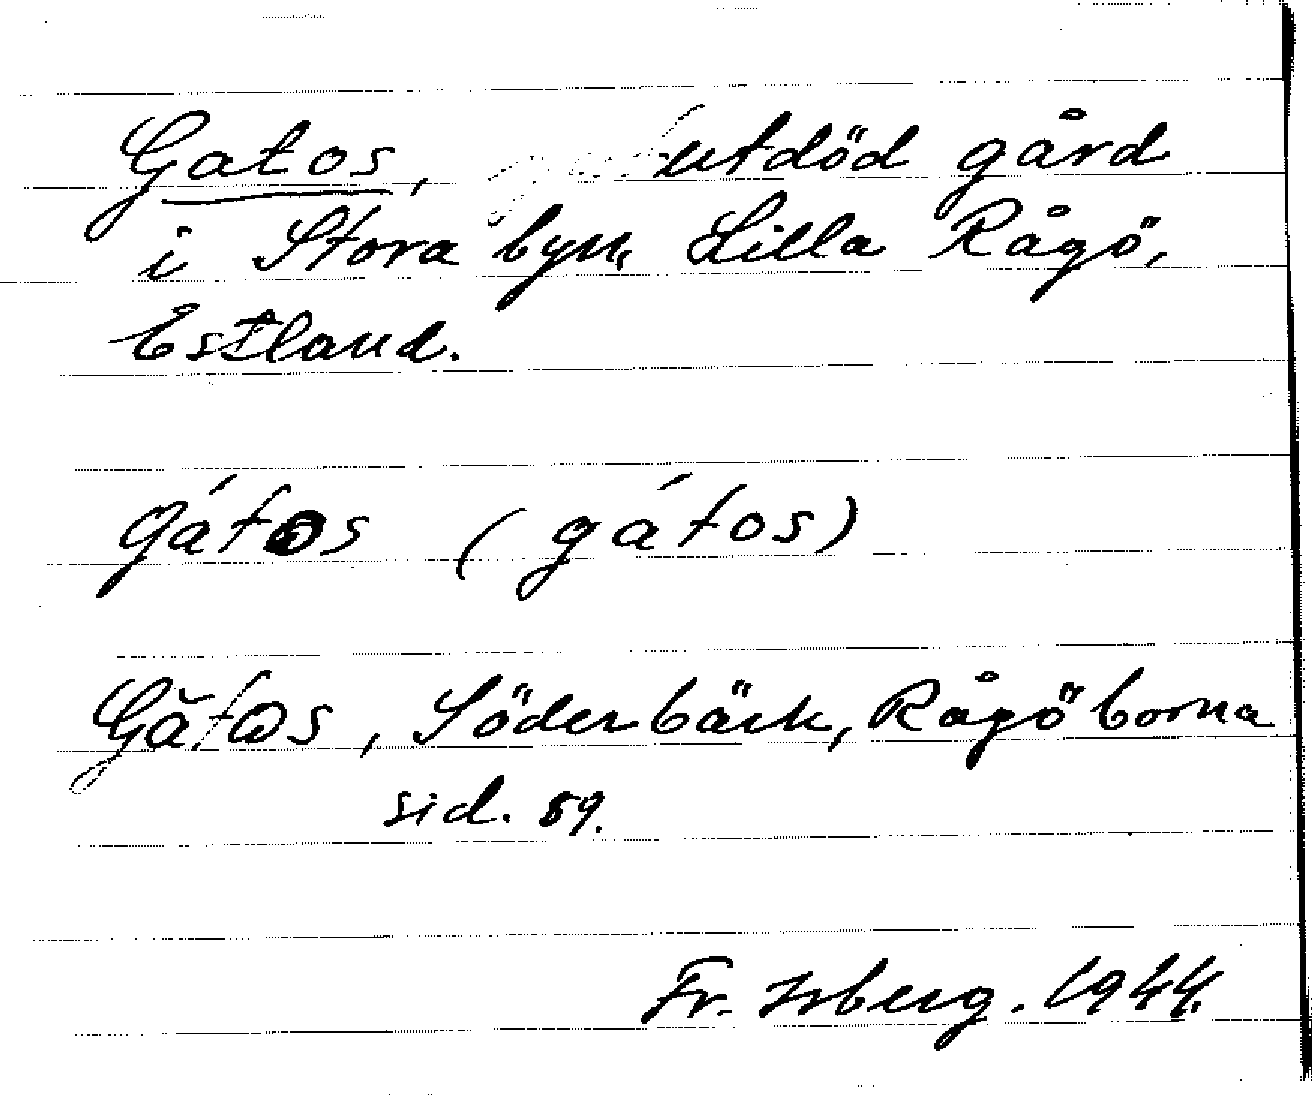 Gatos, utdöd gård
i Stora byn, Lilla Rågö,
Estland.
gátos (gátos)
Gătos, Söderbäck, Rågöborna
sid. 59.
Fr. Isberg. 1944.